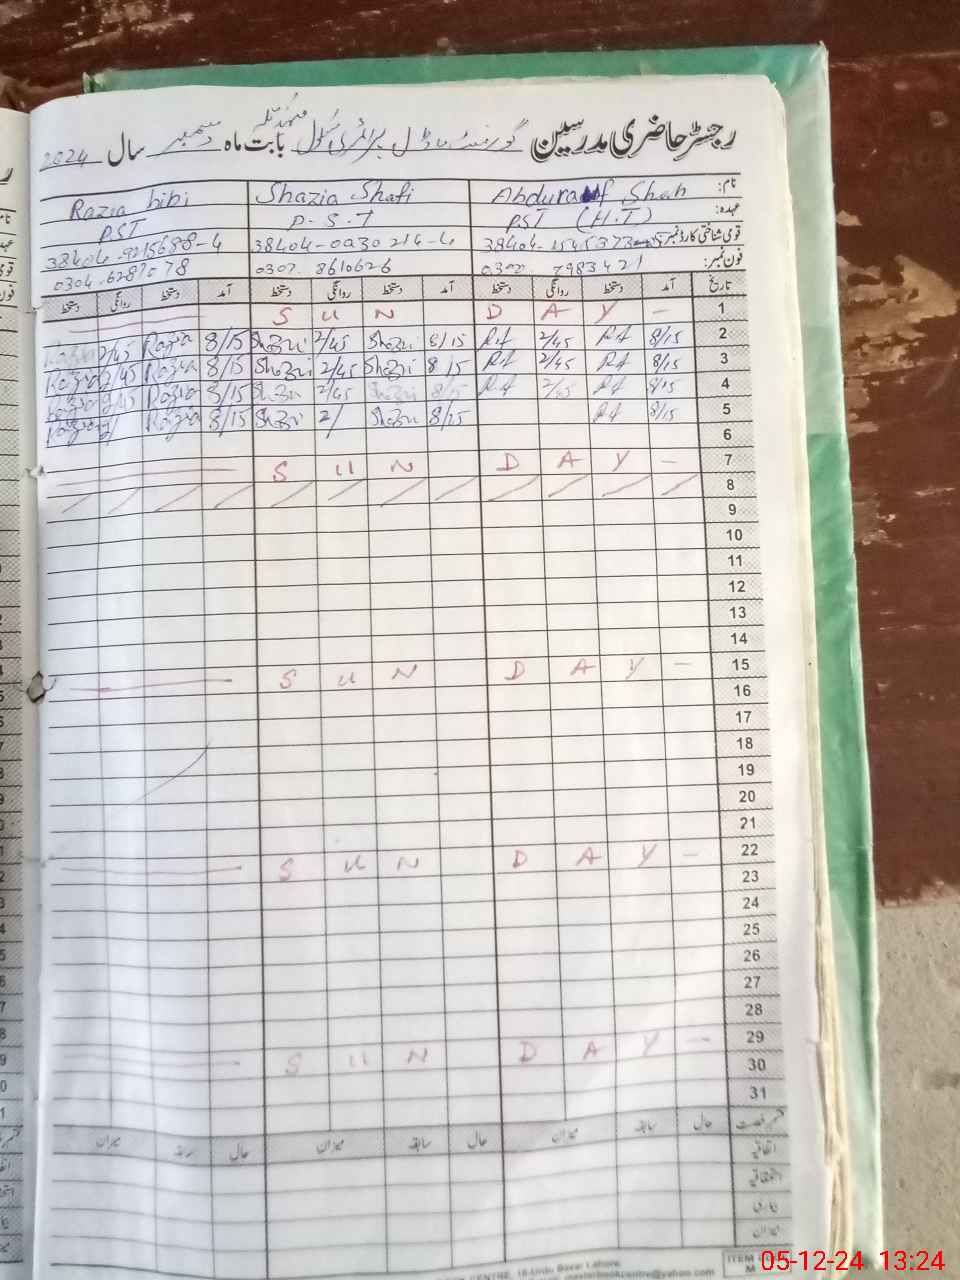 رجسٹر حاضری مدرسین گورنمنٹ ماڈل پرائمری سکول بابت ماہ دسمبر سال 2024
نام: Abdurauf Shah Shazia Shafi Razia bibi
عہدہ: PST (H.T) P.S.T PST
قومی شناختی کارڈ نمبر: 38404-0230214-4 38404-9215688-4
فون نمبر: 0300. 7983421 0307. 8610626 0304.6287078
تاریخ آمد دستخط روانگی دستخط آمد دستخط روانگی دستخط آمد دستخط روانگی دستخط
1 S U N D A Y —
2 8/15 RA 2/45 RA 8/15 Shazi 2/45 Shazi 8/15 Razia 2/45
3 8/15 RA 2/45 RA 8/15 Shazi 2/45 Shazi 8/15 Razia 2/45 Razia
4 8/15 RA 2/45 RA 8/15 Shazi 2/45 Shazi 8/15 Razia 2/45 Razia
5 8/15 RA 8/15 Shazi 2/ Shazi 8/15 Razia 2/ Razia
6
7 S U N D A Y —
8
9
10
11
12
13
14
15 S U N D A Y —
16
17
18
19
20
21
22 S U N D A Y —
23
24
25
26
27
28
29 S U N D A Y —
30
31
قسم رخصت حال سابقہ میزان حال سابقہ میزان حال سابقہ میزان
اتفاقیہ
استحقاقیہ
بیماری
میزان
CENTRE, 16-Urdu Bazar Lahore.
masterbookcentre@yahoo.com
ITEM CODE
05-12-24 13:24